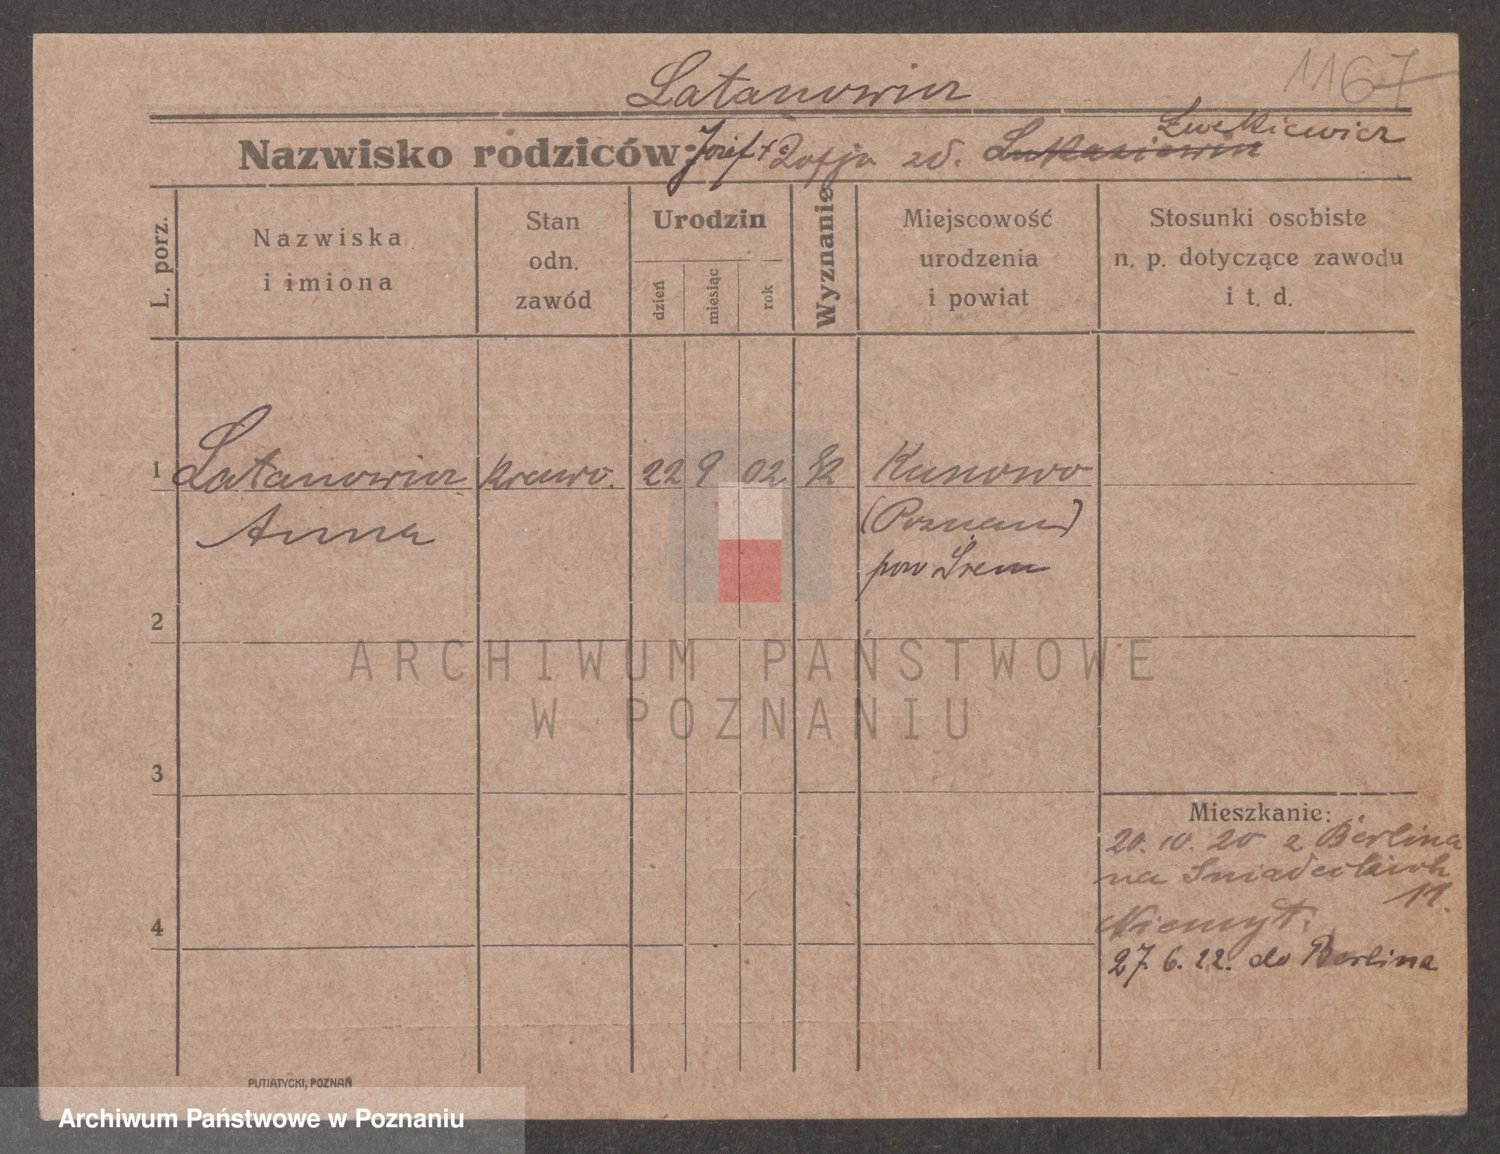 Latanowicz 1167
Żurkiewicz
Nazwisko rodziców: Józef + Zofja zd. Łukasiewicz
L. porz.
Nazwiska
i imiona
Stan
odn.
zawód
Urodzin
dzień
miesiąc
rok
Wyznanie
Miejscowość
urodzenia
i powiat
Stosunki osobiste
n. p. dotyczące zawodu
i t. d.
1 Latanowicz krawc. 22 9 02 Kunowo
Anna (Poznań)
pow Śrem
2
ARCHIWUM PAŃSTWOWE
W POZNANIU
3
Mieszkanie:
20. 10. 20 z Berlina
na Śniadeckich
4
27. 6. 22. do Berlina
PUTIATYCKI, POZNAŃ
Archiwum Państwowe w Poznaniu